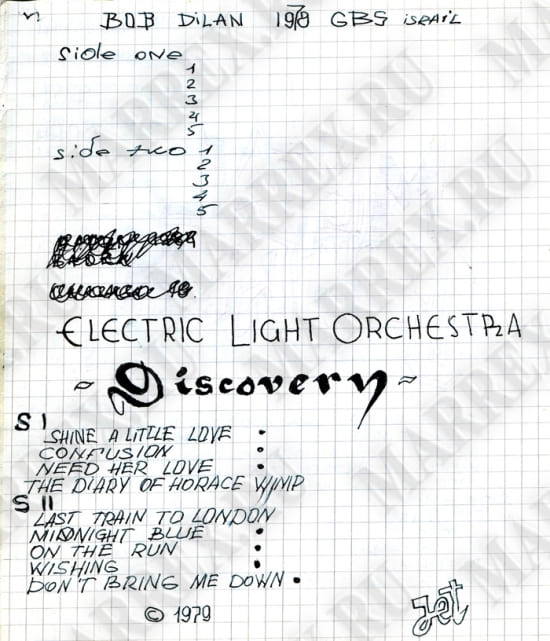 BOB DiLAN 1979 GBS iSRAiL
Side one
1
2
3
4
5
side two 1
2
3
4
5
ELECTRIC LIGHT ORCHESTRA
~ Discovery ~
S I
SHINE A LiTTLE LOVE •
CONFUSION •
NEED HER LOVE •
THE DIARY OF HORACE WIMP
S II
LAST TRAIN TO LONDON
MIDNIGHT BLUE •
ON THE RUN •
WISHING •
DON'T BRING ME DOWN •
© 1979
Jet
MARREX.RU